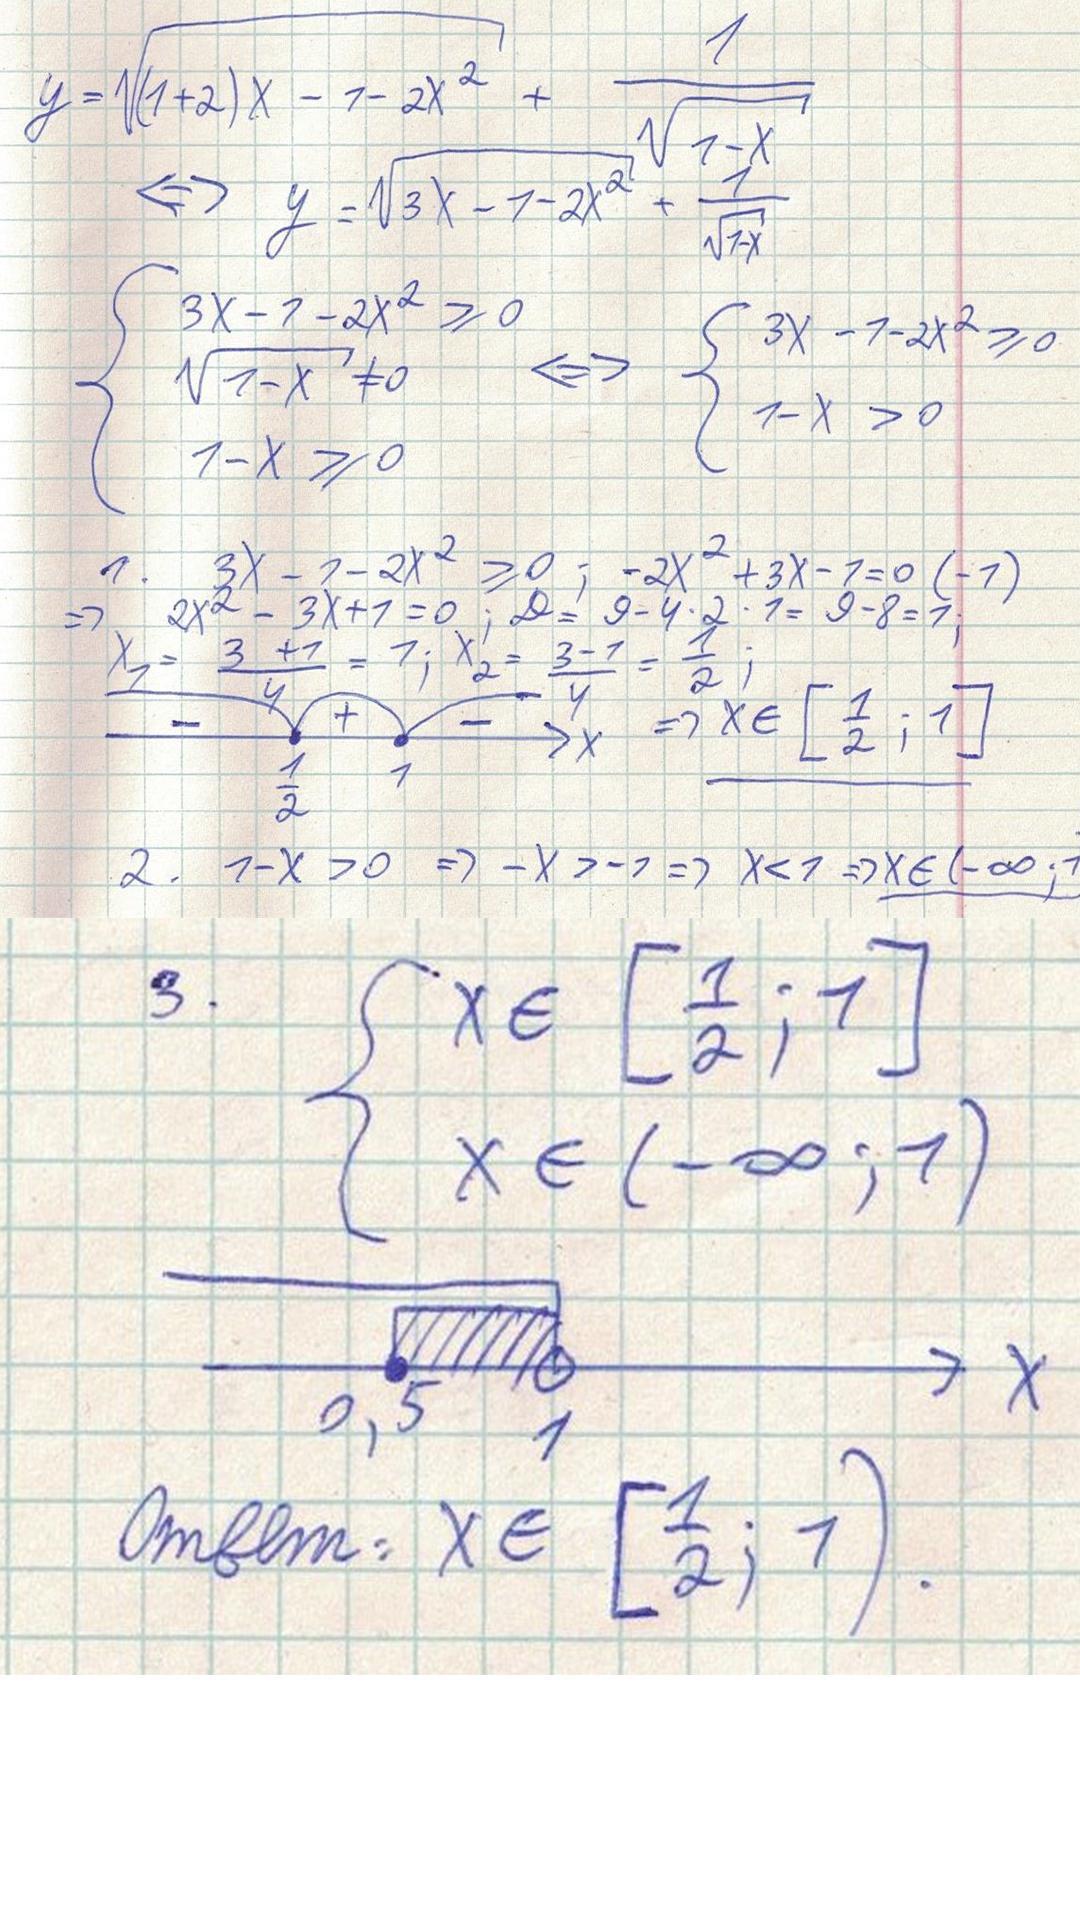 y = √((1+2)x - 1 - 2x²) + 1/√(1-x)
<=> y = √(3x - 1 - 2x²) + 1/√(1-x)
{ 3x - 1 - 2x² ⩾ 0
√(1-x) ≠ 0
1-x ⩾ 0
<=> { 3x - 1 - 2x² ⩾ 0
1-x > 0
1. 3x - 1 - 2x² ⩾ 0 ; -2x² + 3x - 1 = 0 (-1)
=> 2x² - 3x + 1 = 0 ; D = 9 - 4·2·1 = 9 - 8 = 1;
x₁ = (3+1)/4 = 1; x₂ = (3-1)/4 = 1/2 ;
- + - x => x ∈ [1/2 ; 1]
1/2 1
2. 1-x > 0 => -x > -1 => x < 1 => x ∈ (-∞ ; 1
3. { x ∈ [1/2 ; 1]
x ∈ (-∞ ; 1)
x
0,5 1
Ответ: x ∈ [1/2 ; 1).